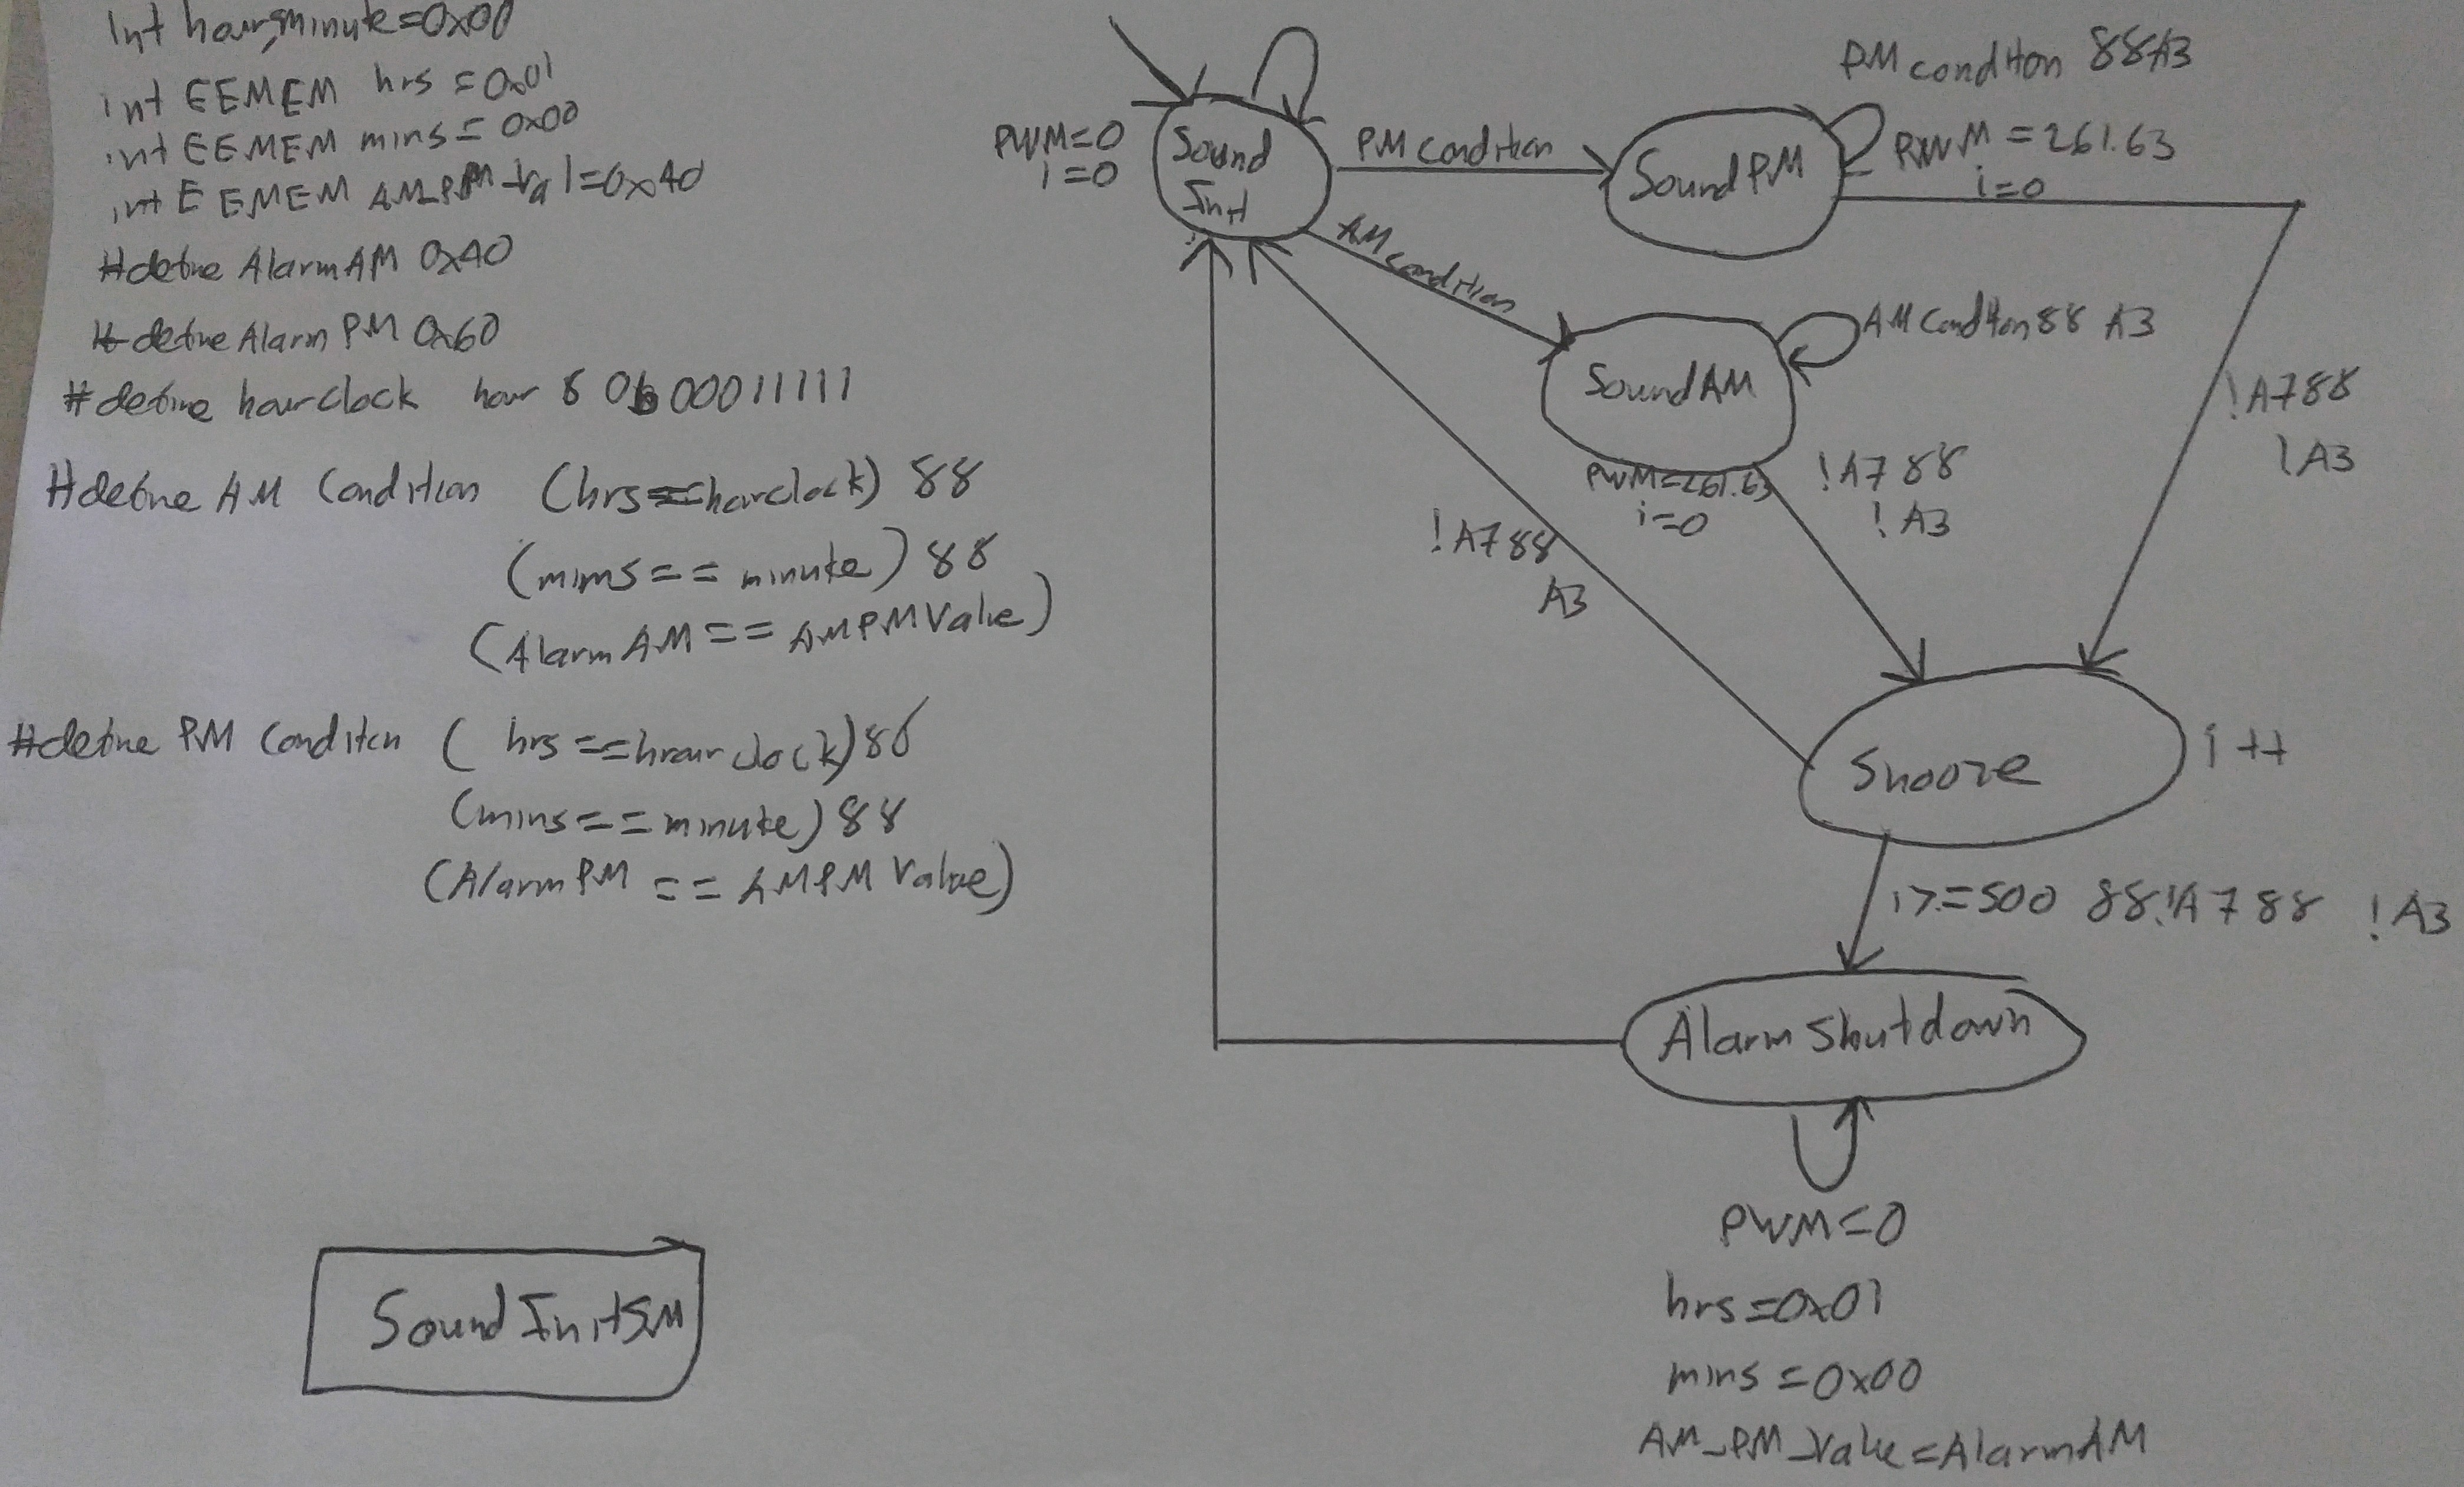 int hour,minute=0x00
int EEMEM hrs = 0x01
int EEMEM mins = 0x00
int EEMEM AM_PM_Val=0x40
#define AlarmAM 0x40
#define Alarm PM 0x60
#define hourclock hour & 0b00011111
#define AM Condition (hrs==hourclock) &&
(mins == minute) &&
(AlarmAM == AMPMValue)
#define PM Condition ( hrs ==hourclock) &&
(mins == minute) &&
(AlarmPM == AMPM Value)
SoundInitSM
PWM=0
i=0
Sound
Init
PM Condition
SoundPM
PM condition && A3
PWM = 261.63
i=0
AM condition
SoundAM
AM Condition && A3
PWM=261.63
i=0
!A7 &&
!A3
!A7&&
!A3
!A7 &&
A3
Snooze
i++
i>=500 && !A7 && !A3
Alarm Shutdown
PWM=0
hrs =0x01
mins =0x00
AM_PM_Value=AlarmAM